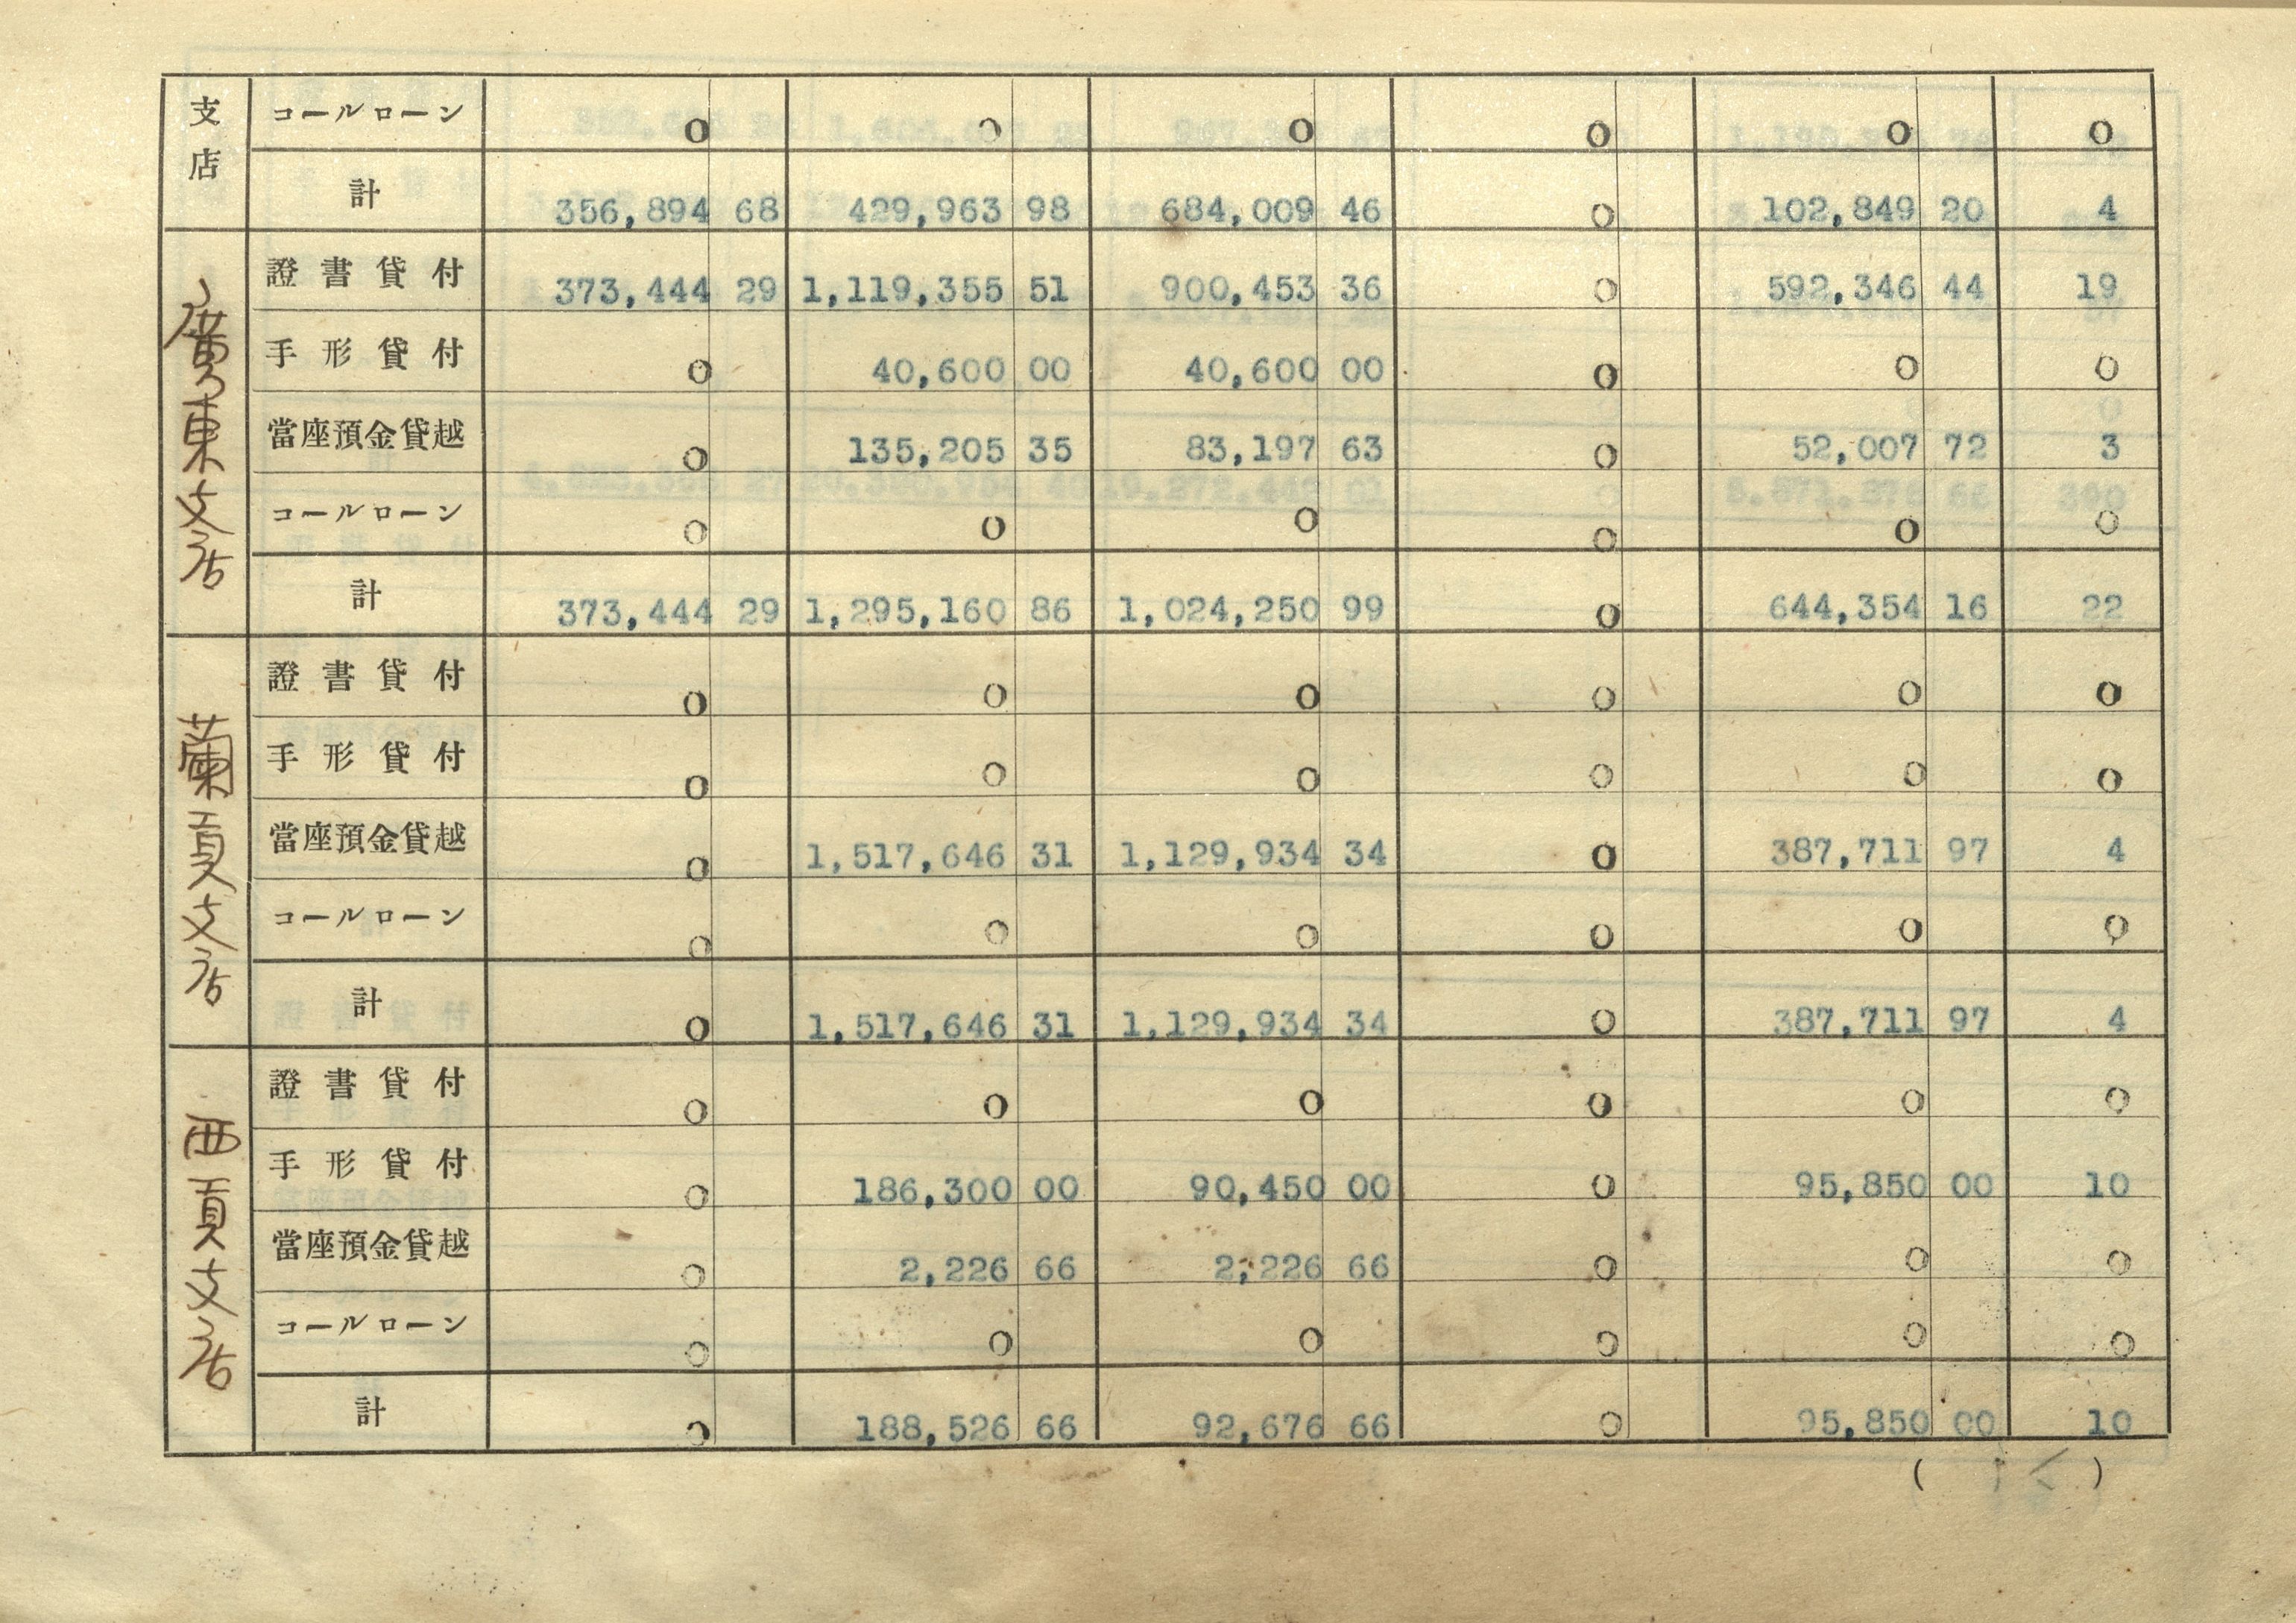 支店 コールローン 0 0 0 0 0 0
計 356,894 68 429,963 98 684,009 46 0 102,849 20 4
廣東支店 證書貸付 373,444 29 1,119,355 51 900,453 36 0 592,346 44 19
手形貸付 0 40,600 00 40,600 00 0 0 0
當座預金貸越 0 135,205 35 83,197 63 0 52,007 72 3
コールローン 0 0 0 0 0 0
計 373,444 29 1,295,160 86 1,024,250 99 0 644,354 16 22
證書貸付 0 0 0 0 0 0
手形貸付 0 0 0 0 0 0
當座預金貸越 0 1,517,646 31 1,129,934 34 0 387,711 97 4
コールローン 0 0 0 0 0 0
計 0 1,517,646 31 1,129,934 34 0 387,711 97 4
證書貸付 0 0 0 0 0 0
手形貸付 0 186,300 00 90,450 00 0 95,850 00 10
當座預金貸越 0 2,226 66 2,226 66 0 0 0
コールローン 0 0 0 0 0 0
計 0 188,526 66 92,676 66 0 95,850 00 10